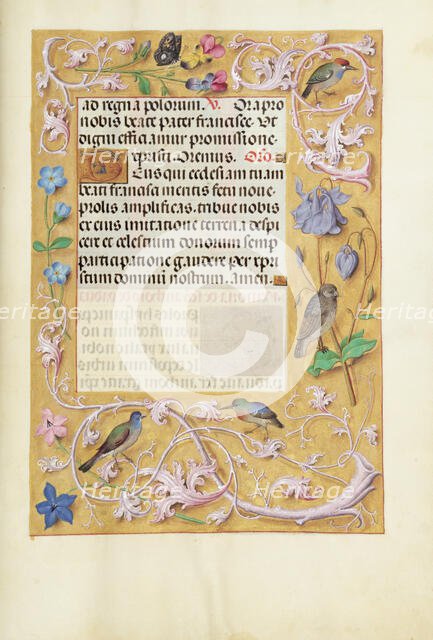 ad regna polorum. V. Ora pro
nobis beate pater francisce. Ut
digni efficiamur promissione
xpristi. Oremus. Oro.
Eus qui ecclesiam tuam
beati francisci meritis fetu noue
prolis amplificas. tribue nobis
ex eius imitatione terrena despi
cere et celestium donorum semp
participatione gaudere per xpri
stum dominum nostrum. amen.
Heritage
Images
Heritage
Images
Heritage
Images
Heritage
Images